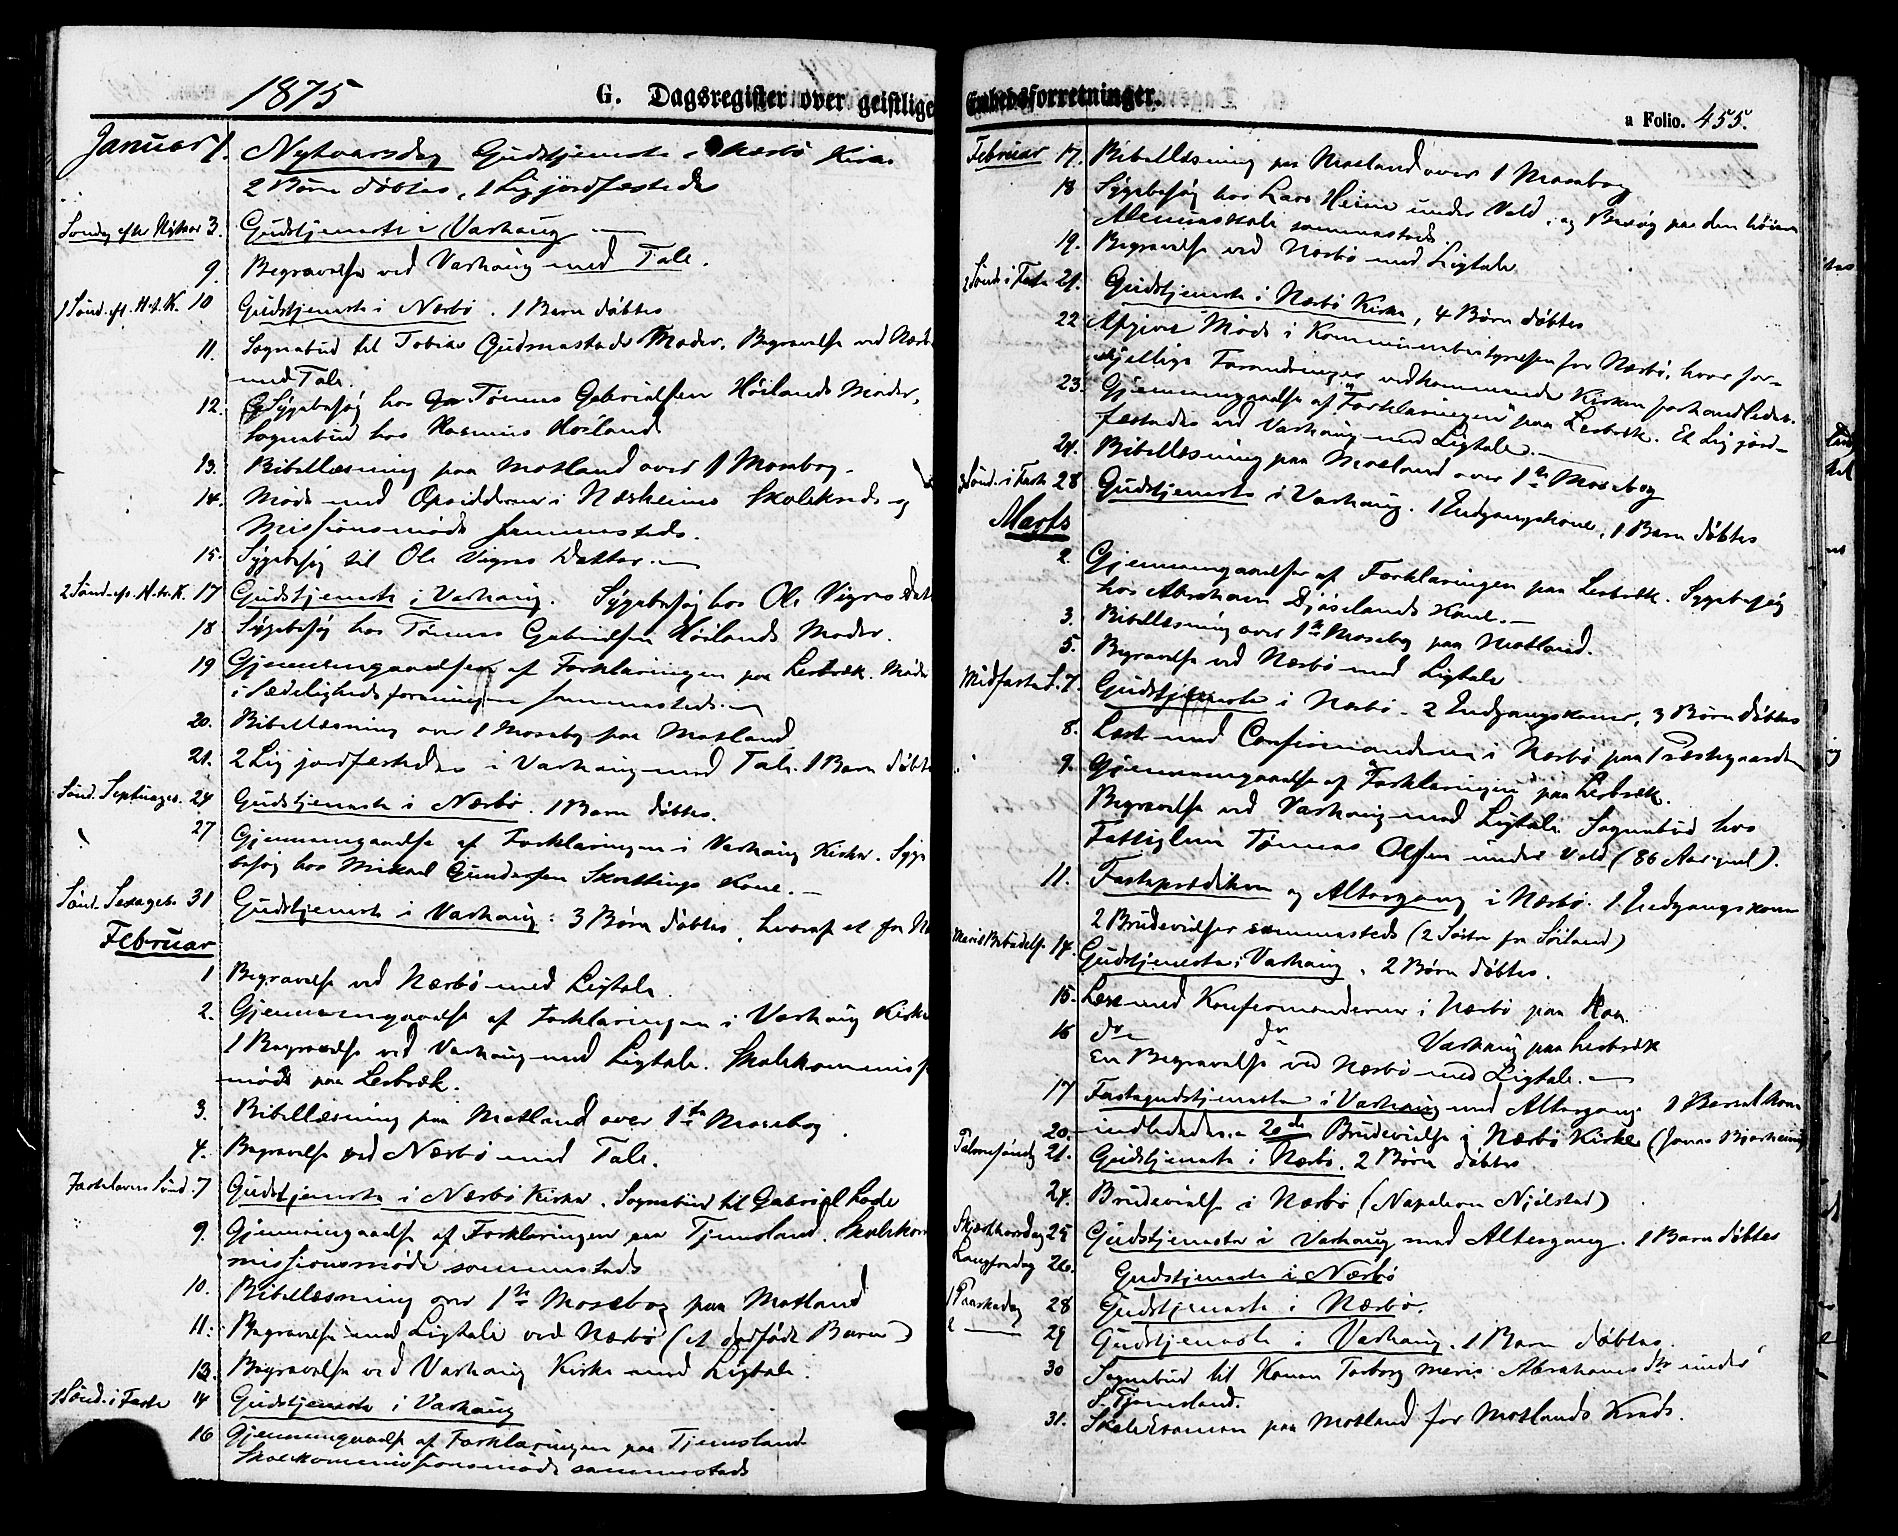 1875
G. Dagsregister over geistlige
Januar 1. Nytaarsdag Gudstjeneste i Nærbø Kirke
2 Børn døbtes, 1 Lig jordfæstedes
Søndag efter Nytaar 3. Gudstjeneste i Varhaug
9. Begravelse ved Varhaug med Tale.
1 Sønd. eft. H.3.K. 10 Gudstjeneste i Nærbø. 1 Barn døbtes
11. Sognebud til Tobias Gudmestads Moder. Begravelse ved Nærbø
med Tale.
12. Sygebesøg hos Tønnes Gabrielsen Høilands Moder,
Sognebud hos Rasmus Høiland
13. Bibellæsning paa Motland over 1 Mosebog.
14. Møde med Opsidderne i Nærheims Skolekreds og
Missionsmøde sammesteds.
15. Sygebesøg til Ole Vigres Datter.
2 Sønd. ef. H.3.K. 17 Gudstjeneste i Varhaug. Sygebesøg hos Ole Vigres Dat
18 Sygebesøg hos Tønnes Gabrielsen Høilands Moder.
19 Gjennemgaaelse af Forklaringen paa Lerbræk. Møde
i Sædelighedsforeningen sammesteds.
20. Bibellæsning over 1 Moseb. paa Motland
21. 2 Lig jordfæstedes i Varhaug med Tale. 1 Barn døbtes
Sønd. Septuages. 24 Gudstjeneste i Nærbø. 1 Barn døbtes.
27 Gjennemgaaelse af Forklaringen i Varhaug Kirke. Syge
besøg hos Mikael Gundersen Skrettings Kone.
Sønd. Sexages. 31 Gudstjeneste i Varhaug: 3 Børn døbtes, hvoraf et fra N
Februar
1 Begravelse ved Nærbø med Ligtale.
2. Gjennemgaaelse af Forklaringen i Varhaug Kirke
1 Begravelse ved Varhaug med Ligtale. Skolekommiss
møde paa Lerbræk.
3. Bibellæsning paa Motland over 1ste Mosebog.
4. Begravelse ved Nærbø med Tale.
Fastelavns Sønd. 7 Gudstjeneste i Nærbø Kirke. Sognebud til Gabriel Lode
9. Gjennemgaaelse af Forklaringen paa Tjemsland. Skolekom
missionsmøde sammesteds
10. Bibellæsning over 1ste Mosebog paa Motland
11. Begravelse med Ligtale ved Nærbø (et dødfødt Barn)
13. Begravelse ved Varhaug Kirke med Ligtale.
1 Sønd. i Faste 14 Gudstjeneste i Varhaug
16 Gjennemgaaelse af Forklaringen paa Tjemsland
Skolekommissionsmøde sammesteds
Embedsforretninger.
a Folio. 455.
Februar 17. Bibellæsning paa Motland over 1 Mosebog
18 Sygebesøg hos Lars Heine under Vold, og Besøg paa den høiere
Almueskole sammesteds.
19. Begravelse ved Nærbø med Ligtale
2 Sønd. i Faste 21. Gudstjeneste i Nærbø Kirke, 4 Børn døbtes
22 Møde i Kommunebestyrelsen for Nærbø, hvor for-
skjellige Forandringer vedkommende Kirken forhandledes.
23. Gjennemgaaelse af "Forklaringen" paa Lerbræk. Et Lig jord-
fæstedes ved Varhaug med Ligtale.
24. Bibellæsning paa Motland over 1ste Mosebog
3 Sønd. i Faste 28 Gudstjeneste i Varhaug. 1 Indgangskone, 1 Barn døbtes
Marts
2. Gjennemgaaelse af Forklaringen paa Lerbræk. Sygebesøg
hos Abraham Kone.
3. Bibellæsning over 1ste Mosebog paa Motland.
5. Begravelse ved Nærbø med Ligtale
Midfaste S. 7. Gudstjeneste i Nærbø. 2 Indgangskoner, 3 Børn døbtes
8. Læste med Confirmanderne i Nærbø paa Præstegaarden
9. Gjennemgaaelse af "Forklaringen" paa Lerbræk.
Begravelse ved Varhaug med Ligtale. Sognebud hos
Fattiglem Tønnes Olsen under Vold (86 Aar gml).
11. Fasteprædiken og Altergang i Nærbø. 1 Indgangskone
2 Brudevielser sammesteds (2 Søstre fra Søiland)
Mariæ Bebudelse 14. Gudstjeneste i Varhaug. 2 Børn døbtes.
15. Læse med Konfirmanderne i Nærbø paa Haa.
16 do do Varhaug paa Lerbræk
En Begravelse ved Nærbø med Ligtale.
17 Fastegudstjeneste i Varhaug med Altergang. 1 Barselkone
20. indlededes. 2de Brudevielse i Nærbø Kirke (Jonas Bjorheim)
Palmesøndag 21. Gudstjeneste i Nærbø. 2 Børn døbtes
24. Brudevielse i Nærbø (Napoleon Njølstad)
Skjærthorsdag 25 Gudstjeneste i Varhaug med Altergang. 1 Barn døbtes
Langfredag 26. Gudstjeneste i Nærbø
1 Paaskedag 28 Gudstjeneste i Nærbø.
2 — 29 Gudstjeneste i Varhaug. 1 Barn døbtes.
30 Sognebud til Konen Torborg Marie Abrahamsdtr under
S. Tjemsland.
31. Skoleexamen paa Motland for Motlands Kreds.